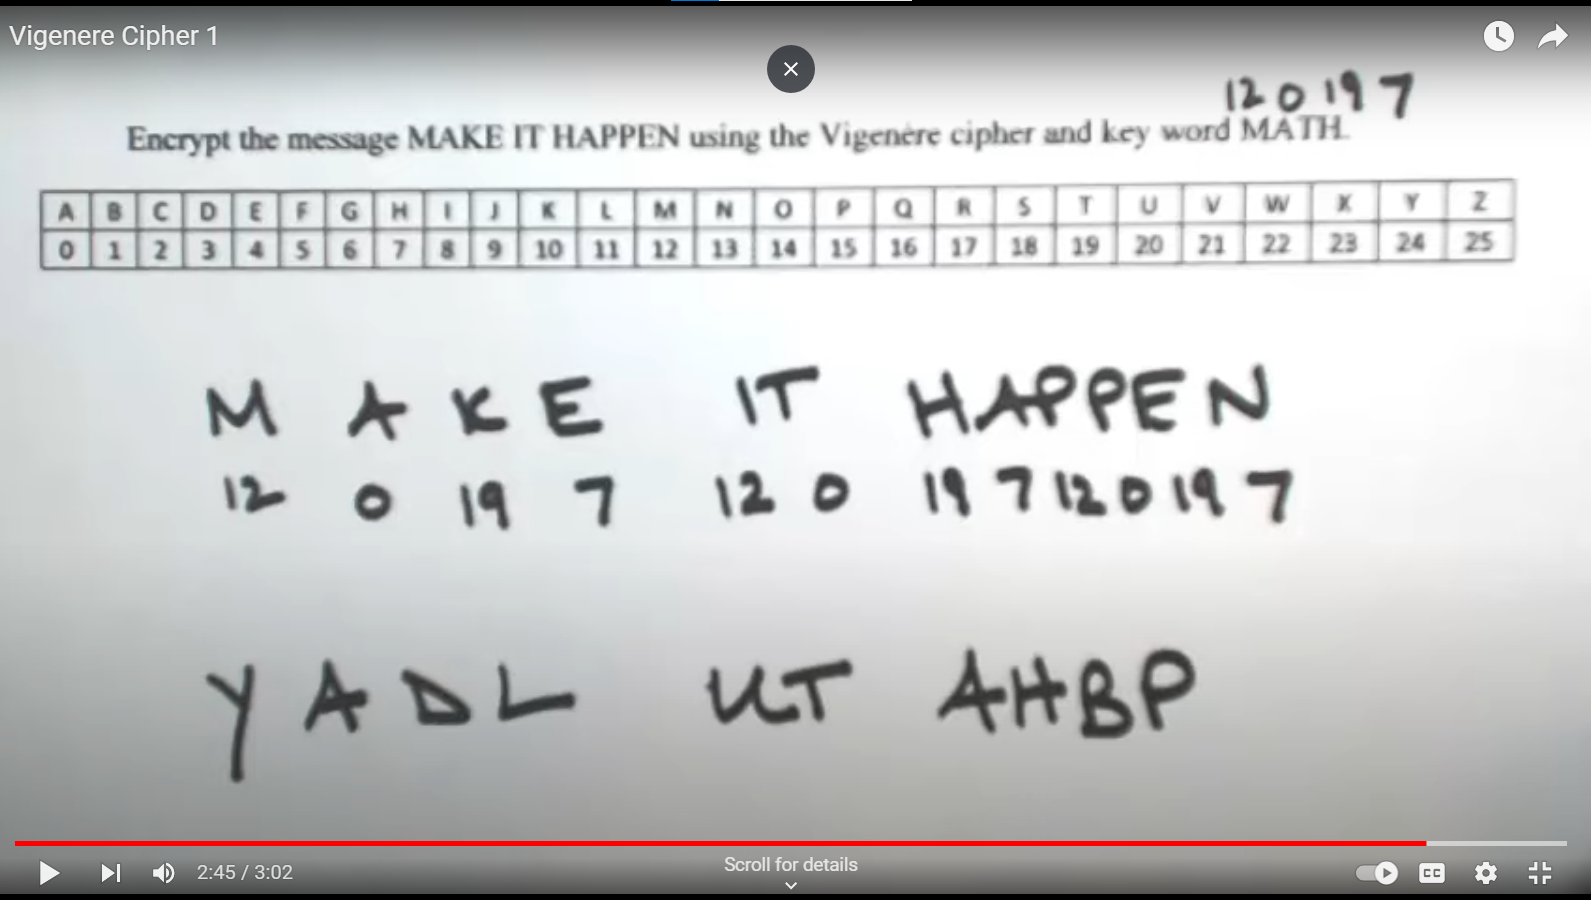 Vigenere Cipher 1
12 0 19 7
Encrypt the message MAKE IT HAPPEN using the Vigenère cipher and key word MATH.
A B C D E F G H I J K L M N O P Q R S T U V W X Y Z
0 1 2 3 4 5 6 7 8 9 10 11 12 13 14 15 16 17 18 19 20 21 22 23 24 25
M A K E IT HAPPEN
12 0 19 7 12 0 19 7 12 0 19 7
Y A D L UT AHBP
2:45 / 3:02
Scroll for details
CC